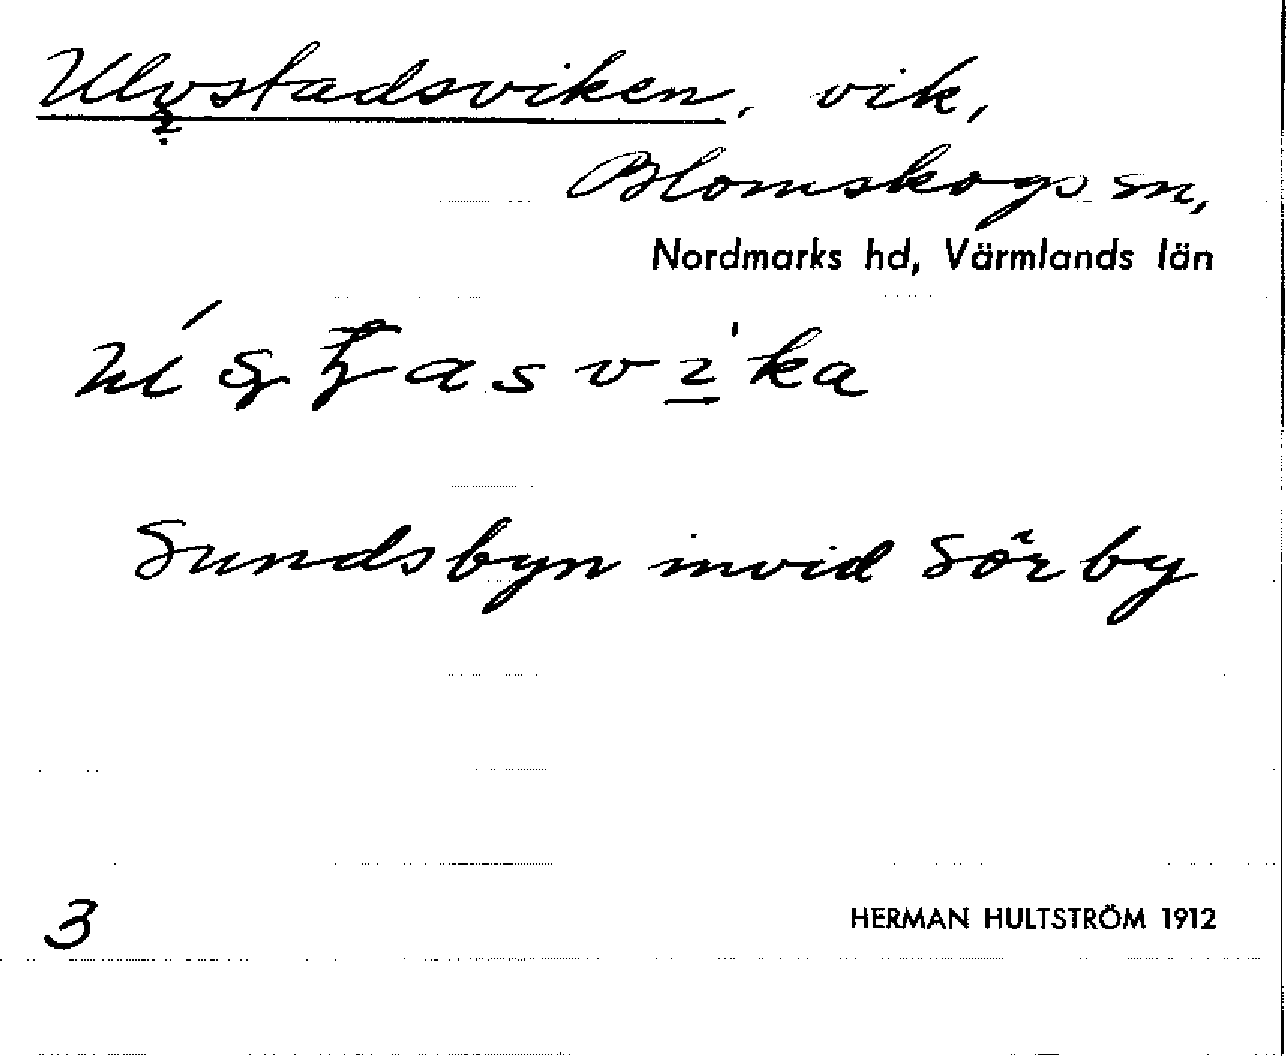 Ulvstadsviken, vik,
?
Blomskogs sn,
Nordmarks hd, Värmlands län
Sundsbyn invid Sörby
3
HERMAN HULTSTRÖM 1912